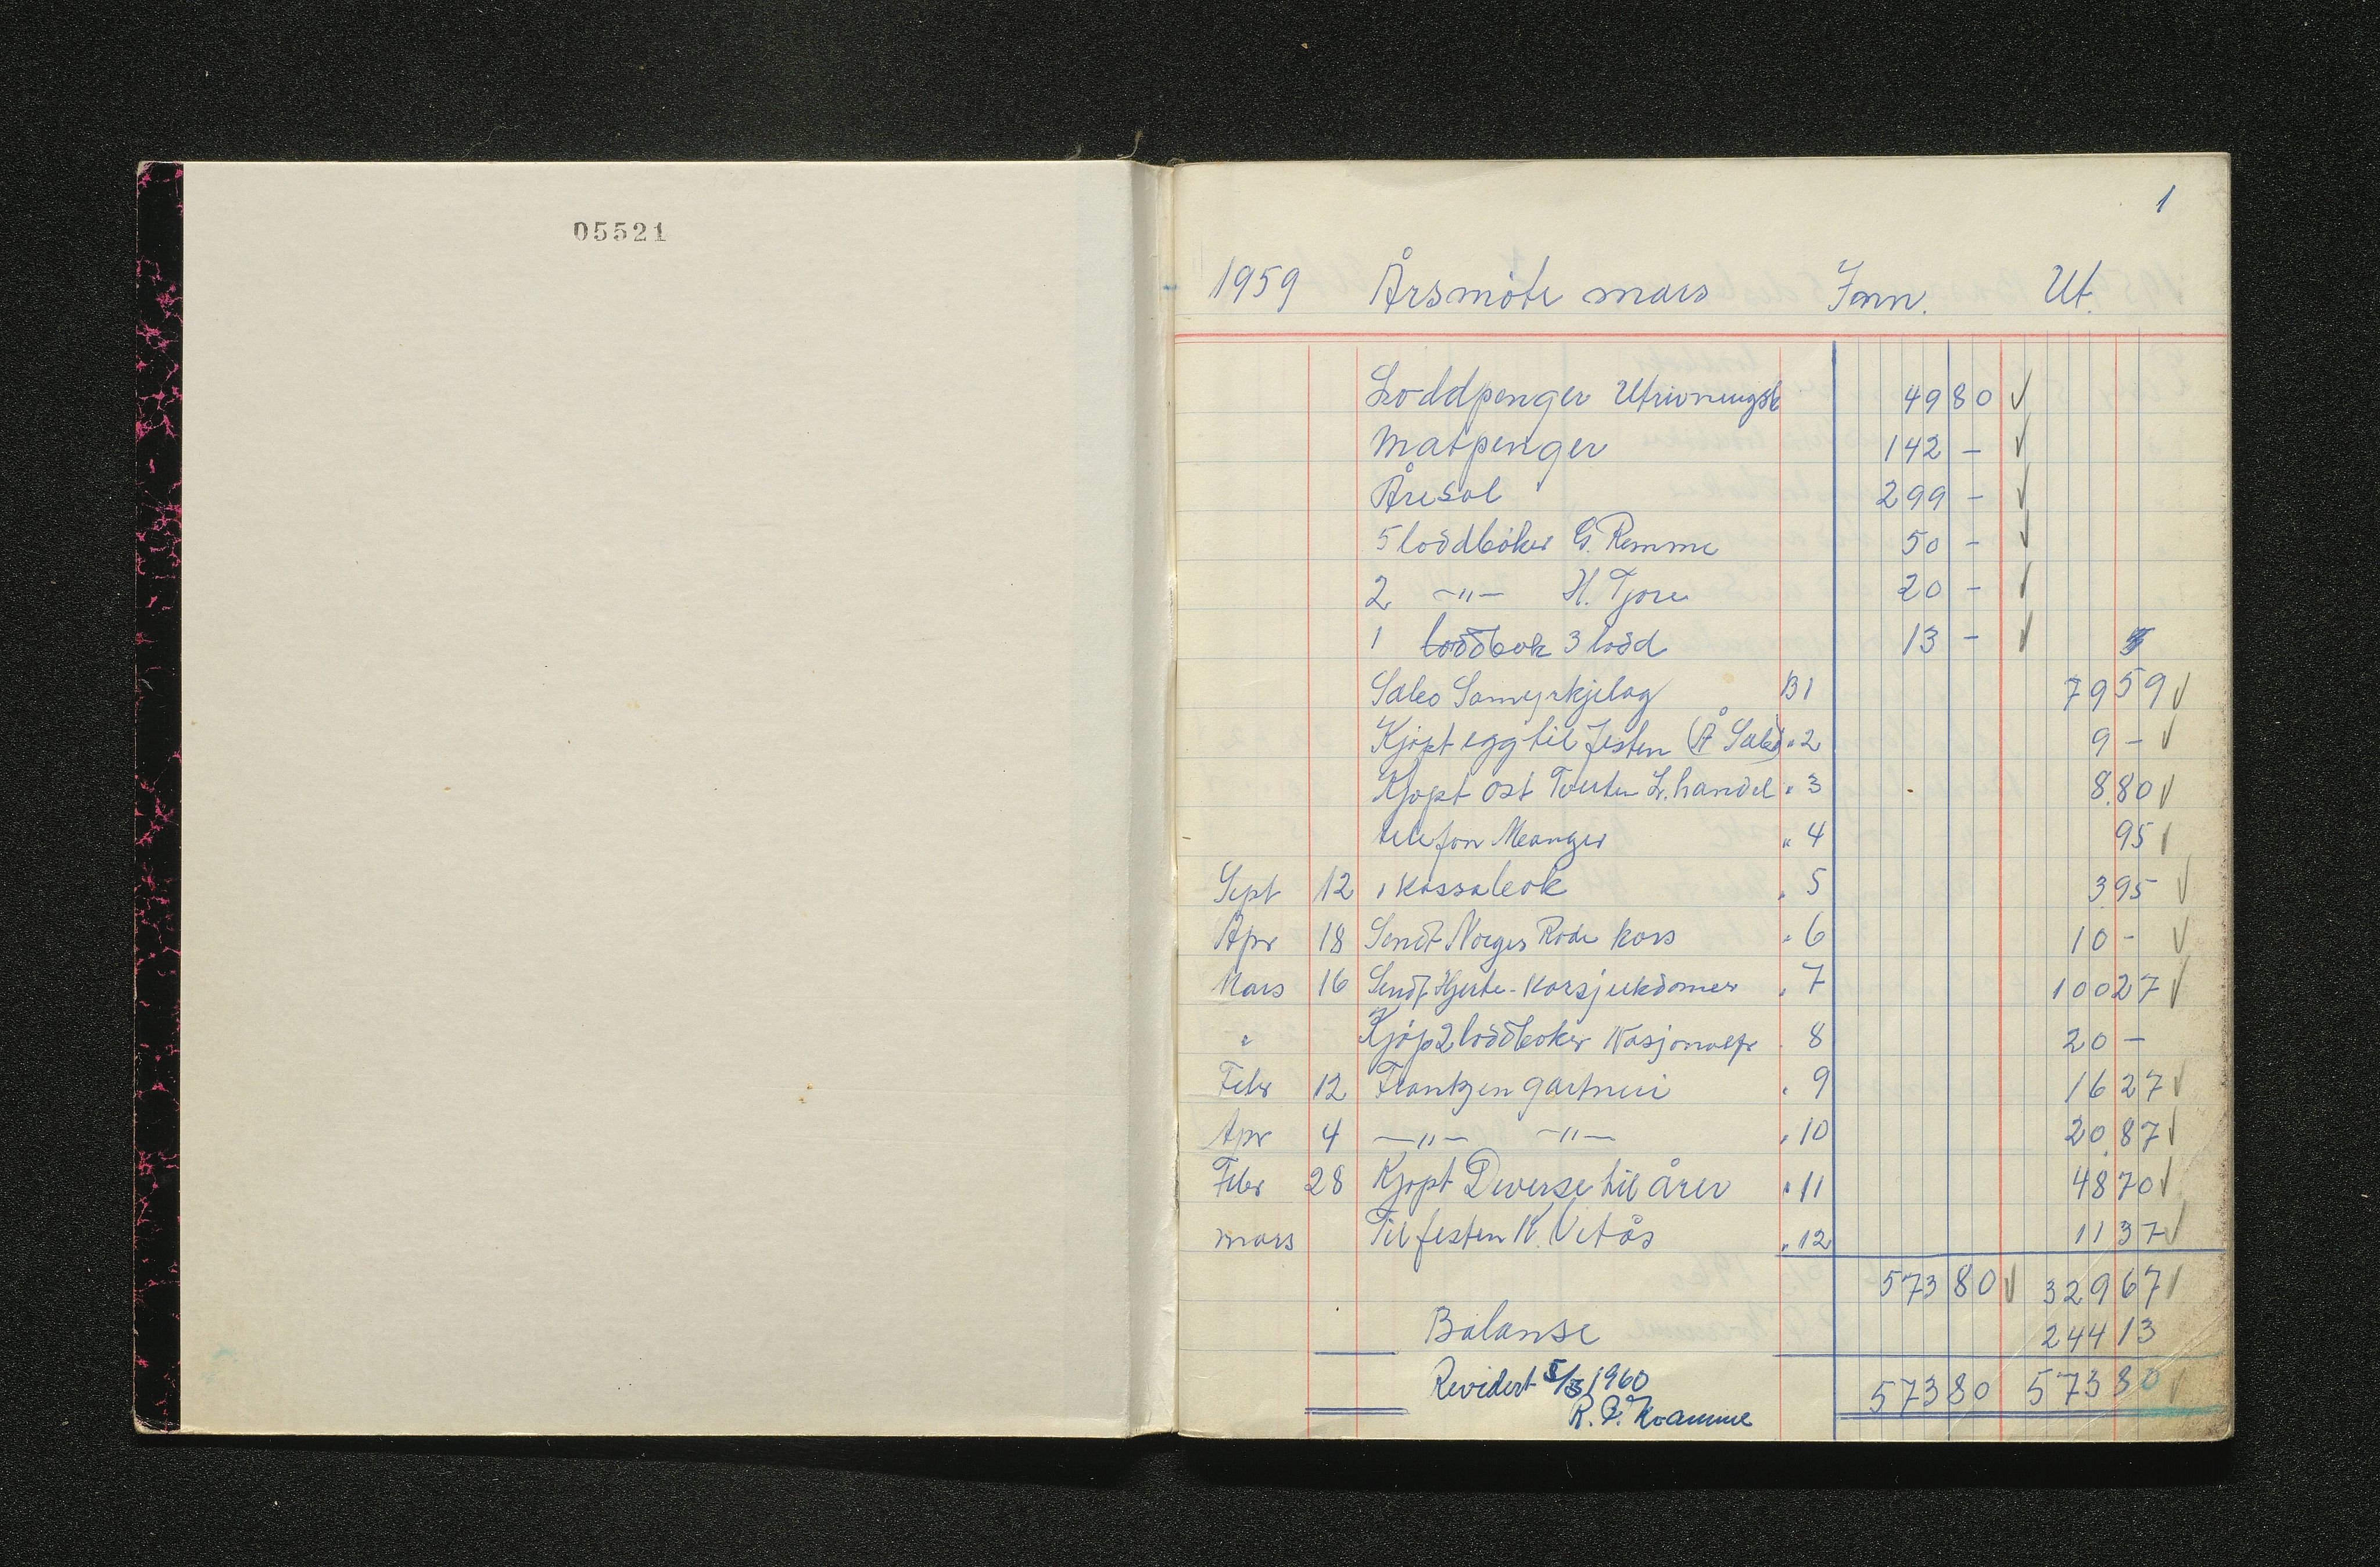 05521
1
1959 Årsmöte mars Inn. Ut.
Loddpenger Utrivningsb 49 80 ✓
Matpenger 142 - ✓
Åresal 299 - ✓
5 loddböker G. Remme 50 - ✓
2 -"- H. Tjore 20 - ✓
1 loddbok 3 lodd 13 - ✓
Sæbo Samyrkjelag B1 79 59 ✓
Kjöpt egg til festen (Å Sæbö) " 2 9 - ✓
Kjöpt ost L. handel " 3 8.80 ✓
telefon Manger " 4 95 ✓
Sept 12 1 kassabok " 5 3 95 ✓
Apr 18 Sendt Norges Röde kors " 6 10 - ✓
Mars 16 Sendt Hjerte-karsjukdomer " 7 100 27 ✓
" Kjöp 2 loddböker Nasjonalfr " 8 20 -
Febr 12 Frantzen gartneri " 9 16 27 ✓
Apr 4 -"- -"- " 10 20.87 ✓
Febr 28 Kjöpt Diverse til årer " 11 48 70 ✓
mars Til festen K. Vetås " 12 11 37 ✓
573 80 ✓ 329 67 ✓
Balanse 244 13
573 80 573 80 ✓
Revidert 5/3 1960
R. J. Kvamme